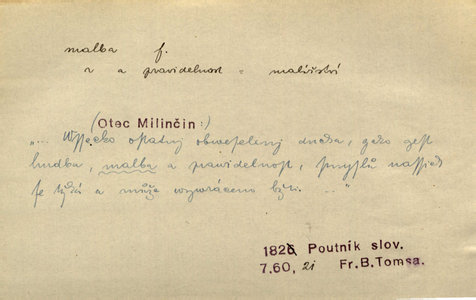 malba f.
r a pravidelnost = malířství
(Otec Milinčin:)
"... Wssecko ostatnj obweselenj ducha, gako gest
hudba, malba a prawidelnost, smyslů
se týká a může wynaraceno býti. ..."
1826 Poutník slov.
7.60, 21 Fr.B.Tomsa.